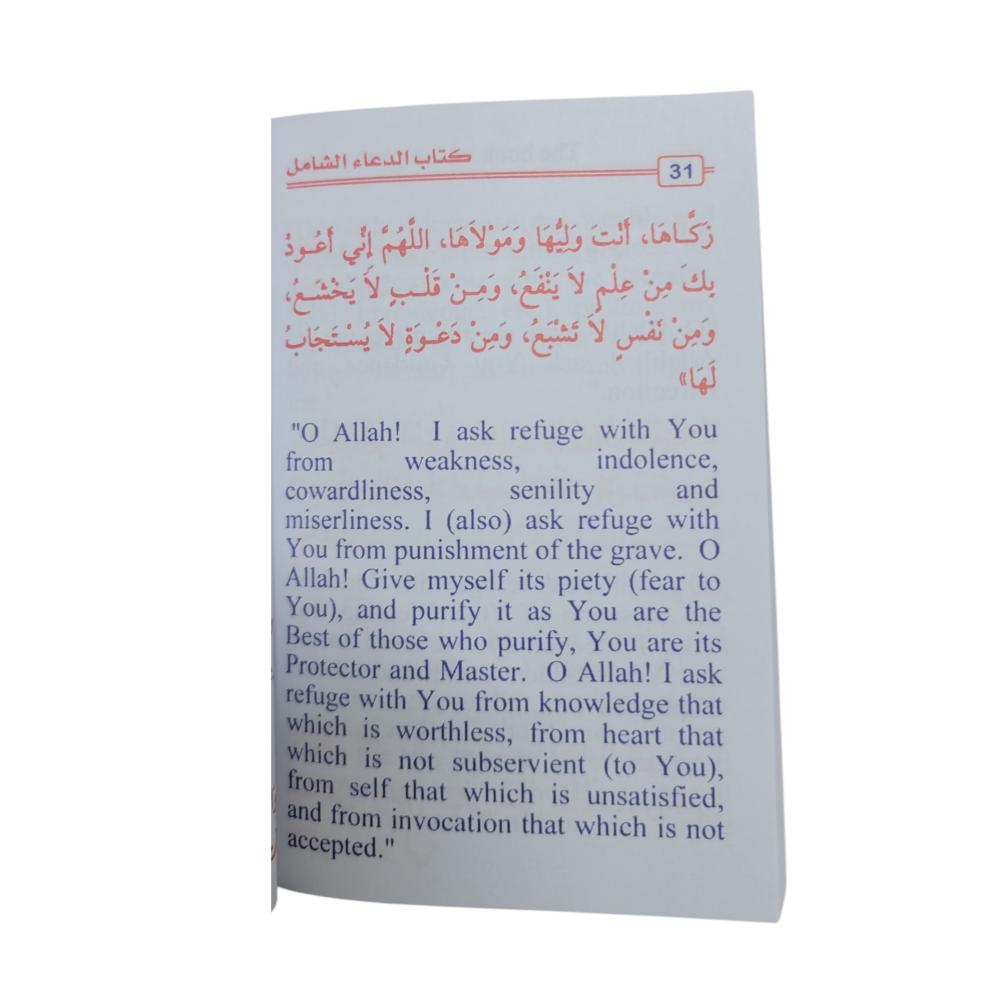 كتاب الدعاء الشامل
31
زَكَّاهَا، أَنْتَ وَلِيُّهَا وَمَوْلاَهَا، اللَّهُمَّ إِنِّي أَعُـوذُ
بِكَ مِنْ عِلْمٍ لاَ يَنْفَعُ، وَمِـنْ قَلْـبٍ لاَ يَخْشَـعُ،
وَمِنْ نَفْسٍ لاَ تَشْبَعُ، وَمِنْ دَعْـوَةٍ لاَ يُسْـتَجَابُ
لَهَا»
"O Allah! I ask refuge with You
from weakness, indolence,
cowardliness, senility and
miserliness. I (also) ask refuge with
You from punishment of the grave. O
Allah! Give myself its piety (fear to
You), and purify it as You are the
Best of those who purify, You are its
Protector and Master. O Allah! I ask
refuge with You from knowledge that
which is worthless, from heart that
which is not subservient (to You),
from self that which is unsatisfied,
and from invocation that which is not
accepted."